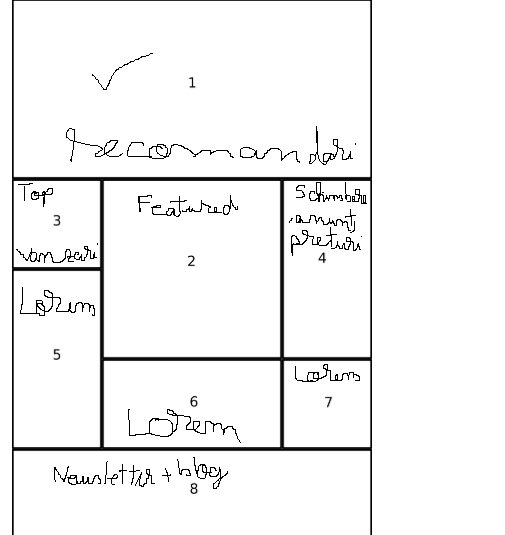 1
recomandari
Top
3
vanzari
Featured
2
Schimbare
anunt
preturi
4
Lorem
5
6
Lorem
Lorem
7
Newsletter + blog
8